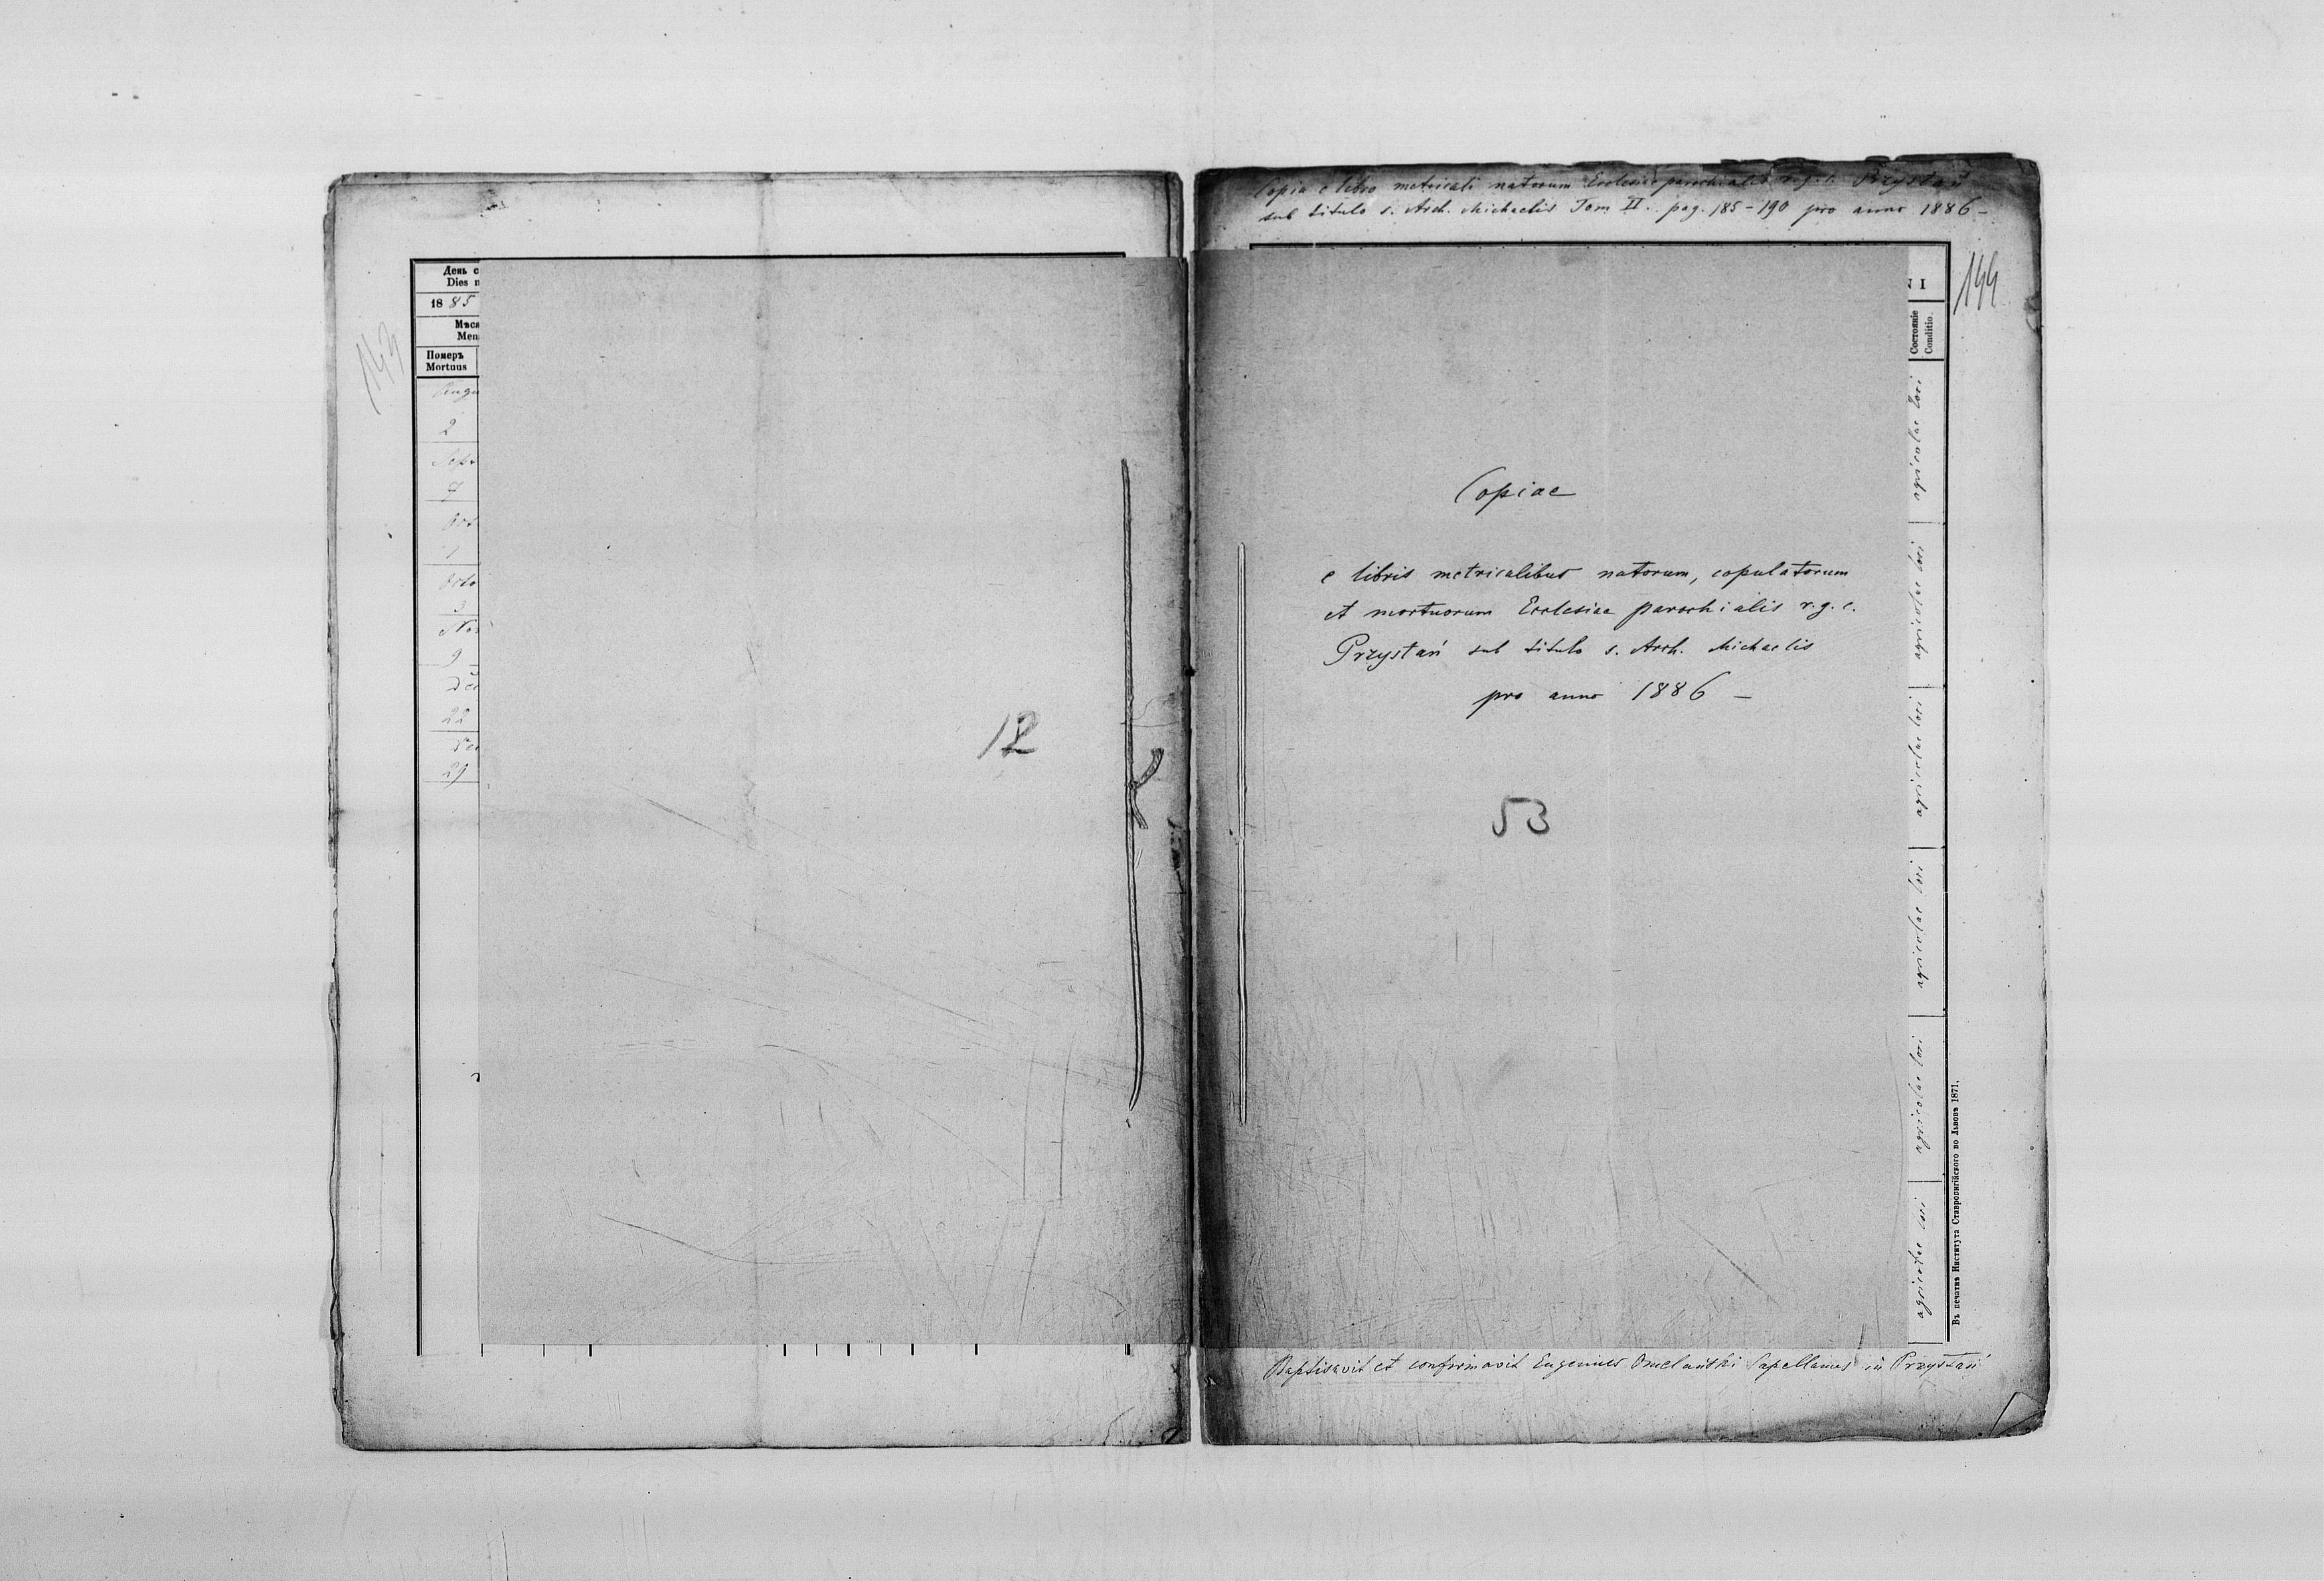 День с
Dies n
18 85
Мѣся
Men
Померъ
Mortuus
Augu
2
Sept
7
Oct
1
Octo
3
Nov
9
Dec
22
Dec
29
143
12
Copia e libro metricali natorum Ecclesiae parochialis r. g. c. Przystań
sub titulo s. Arch. Michaelis Tom II. pag. 185-190 pro anno 1886 -
N I
144
Состояніе
Conditio.
Copiae
e libris metricalibus natorum, copulatorum
et mortuorum Ecclesiae parochialis r. g. c.
Przystań sub titulo s. Arch. Michaelis
pro anno 1886 -
53
agricolae loci
agricolae loci
agricolae loci
agricolae loci
agricolae loci
agricolae loci
Въ печатнѣ Института Ставропигійского во Львовѣ 1871.
Baptisavit et confirmavit Eugenius Omelański Capellanus in Przystań